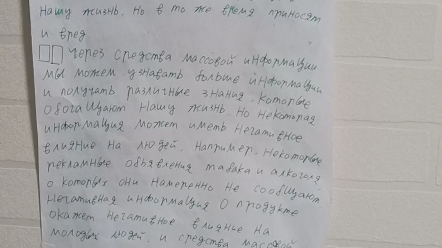 нашу жизнь. Но в то же время приносят
и вред.
Через средства массовой информации
мы можем узнавать больше информации
и получать различные знания, которые
обогащают нашу жизнь. Но некоторая
информация может иметь негативное
влияние на людей. Например, некоторые
рекламные объявления табака и алкоголя
о которых они намеренно не сообщают
негативная информация о продукте
окажет негативное влияние на
молодых людей, и средства массовой